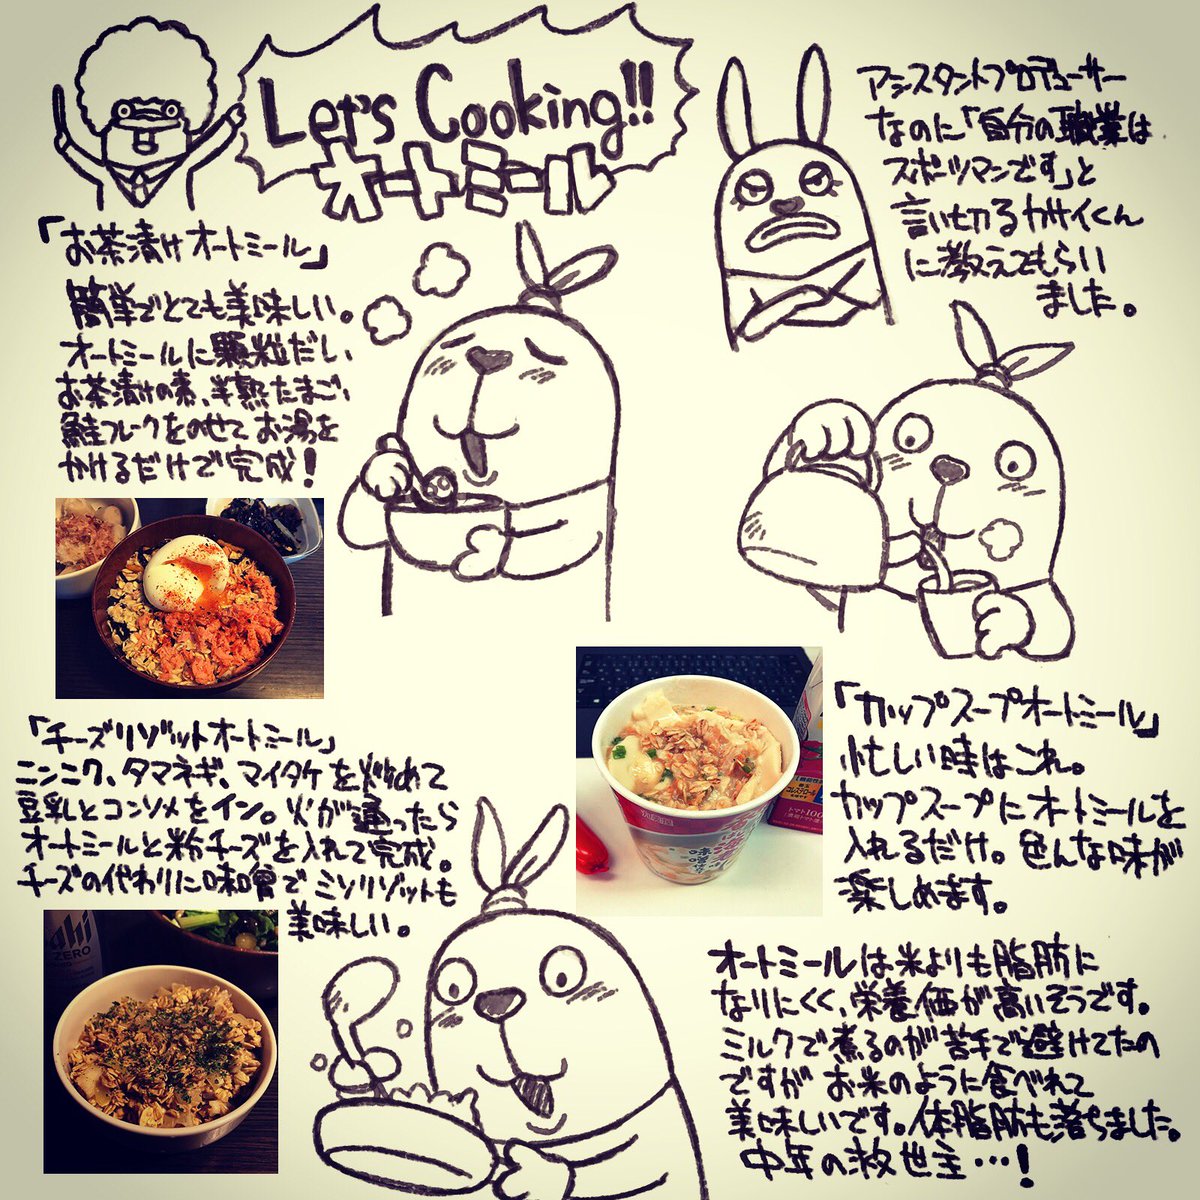 Let's Cooking!!
オートミール
アシスタントプロデューサー
なのに「自分の職業は
スポーツマンです」と
言い切るカサイくん
に教えてもらい
ました。
「お茶漬けオートミール」
簡単でとても美味しい。
オートミールに顆粒だし、
お茶漬けの素、半熟たまご、
鮭フレークをのせてお湯を
かけるだけで完成!
「カップスープオートミール」
忙しい時はこれ。
カップスープにオートミールを
入れるだけ。色んな味が
楽しめます。
「チーズリゾットオートミール」
ニンニク、タマネギ、マイタケを炒めて
豆乳とコンソメをイン。火が通ったら
オートミールと粉チーズを入れて完成。
チーズの代わりに味噌でミソリゾットも
美味しい。
ahi
ZERO
トマト100
オートミールは米よりも脂肪に
なりにくく、栄養価が高いそうです。
ミルクで煮るのが苦手で避けてたの
ですがお米のように食べれて
美味しいです。体脂肪も落ちました。
中年の救世主…!